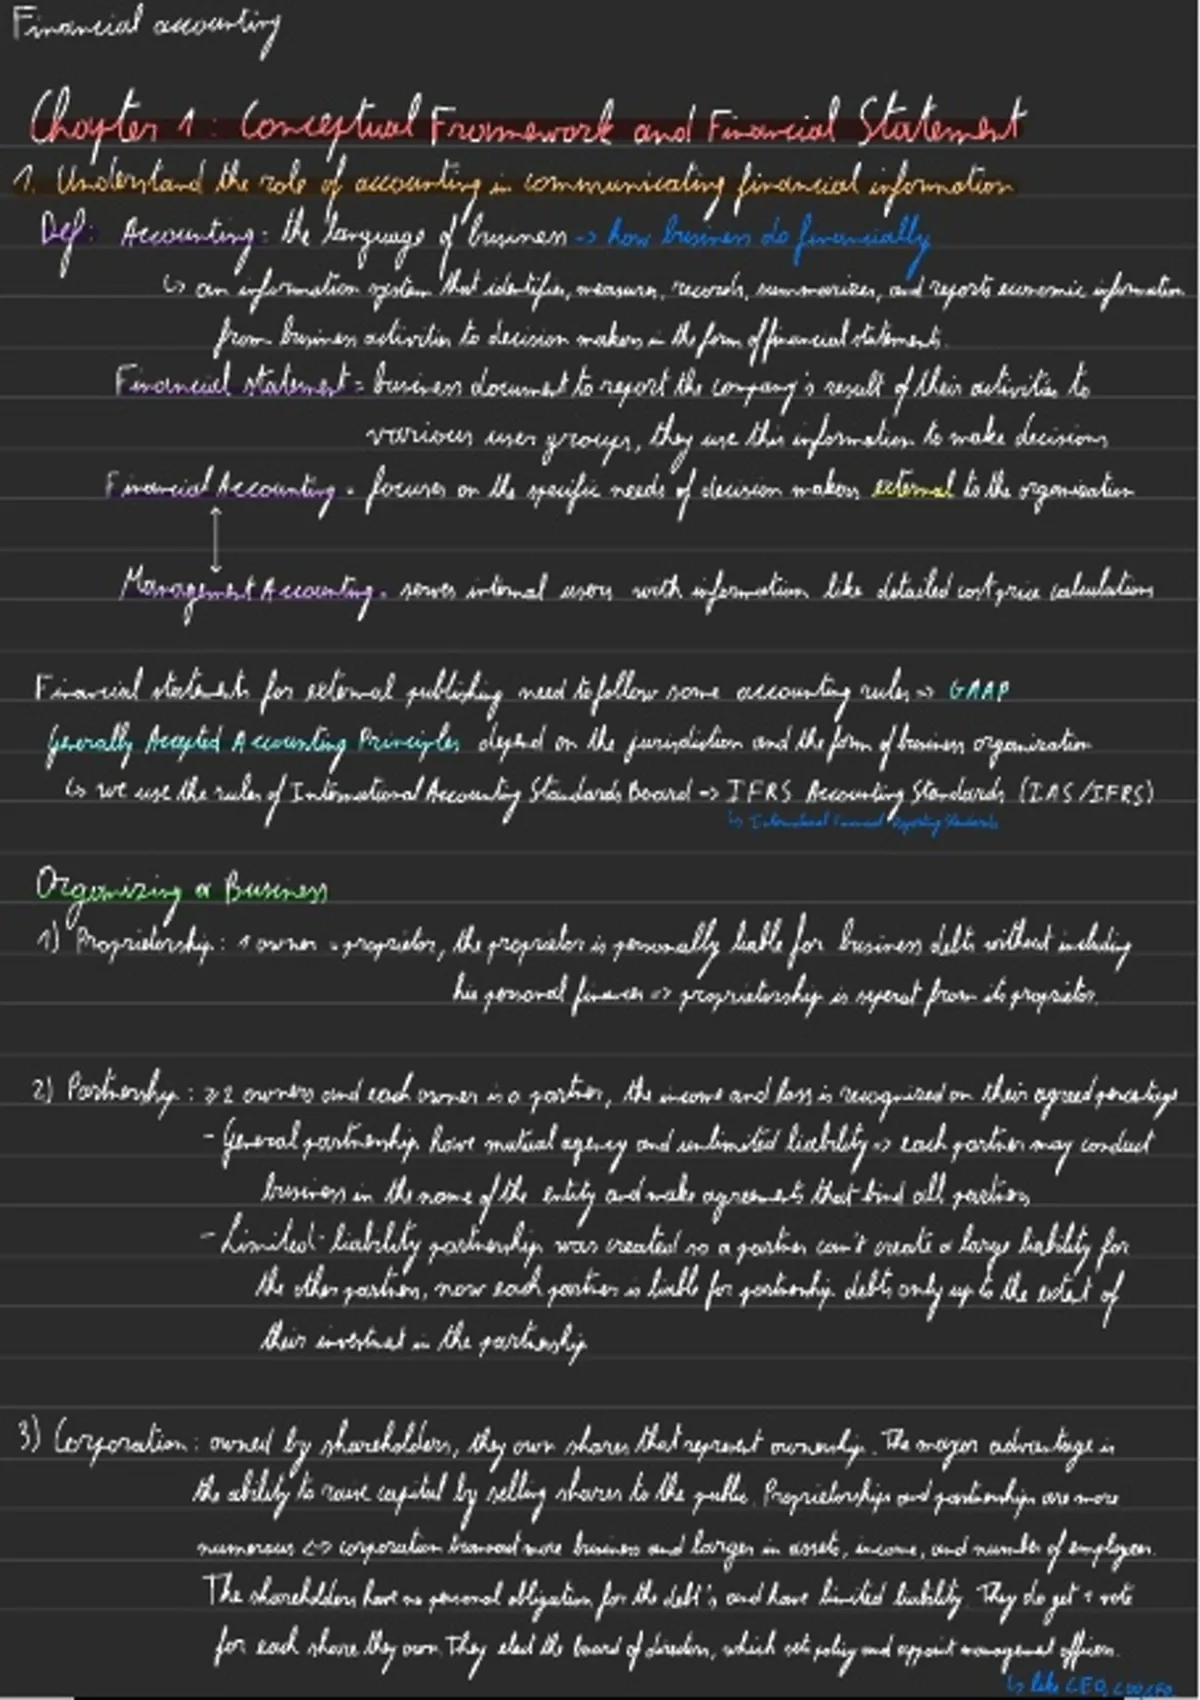 Financial accounting
Chapter 1: Conceptual Framework and Financial Statement
1. Understand the role of accounting in communicating financial information
Def: Accounting: the language of business -> how business do financially
↳ an information system that identifies, measures, records, summarizes, and reports economic information
from business activities to decision makers in the form of financial statements.
Financial statement = business document to report the company's result of their activities to
various user groups, they use this information to make decisions
Financial Accounting = focuses on the specific needs of decision makers external to the organisation
Management Accounting = serves internal users with information like detailed cost price calculations
Financial statements for external publishing need to follow some accounting rules => GAAP
Generally Accepted Accounting Principles depend on the jurisdiction and the form of business organization
↳ we use the rules of International Accounting Standards Board -> IFRS Accounting Standards (IAS/IFRS)
↳ International Financial Reporting Standards
Organizing a Business
1) Proprietorship: 1 owner = proprietor, the proprietor is personally liable for business debts without including
his personal finances => proprietorship is seperat from its proprietor.
2) Partnership: ≥2 owners and each owner is a partner, the income and loss is recognized on their agreed percentage
- General partnership have mutual agency and unlimited liability => each partner may conduct
business in the name of the entity and make agreements that bind all partners
- Limited-liability partnership was created so a partner can't create a large liability for
the other partners, now each partner is liable for partnership debts only up to the extent of
their investment in the partnership
3) Corporation: owned by shareholders, they own shares that represent ownership. The major advantage is
the ability to raise capital by selling shares to the public. Proprietorships and partnerships are more
numerous <-> corporation transact more business and larger in assets, income, and number of employees.
The shareholders have no personal obligation for the debt's and have limited liability. They do get 1 vote
for each share they own. They elect the board of directors, which sets policy and appoint management officers.
↳ like CEO, COO, CFO